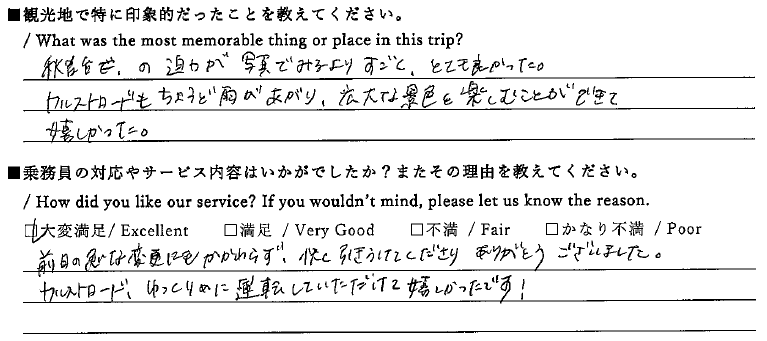 ■観光地で特に印象的だったことを教えてください。
/ What was the most memorable thing or place in this trip?
秋吉台も、の迫力が写真でみるよりすごく、とても良かった。
カルストロードもちょうど雨があがり、広大な景色を楽しむことができて
嬉しかった。
■乗務員の対応やサービス内容はいかがでしたか？またその理由を教えてください。
/ How did you like our service? If you wouldn't mind, please let us know the reason.
☑大変満足 / Excellent □満足 / Very Good □不満 / Fair □かなり不満 / Poor
前日の急な変更にもかかわらず、快く引きうけてくださりありがとうございました。
カルストロード、ゆっくりめに運転していただけて嬉しかったです！